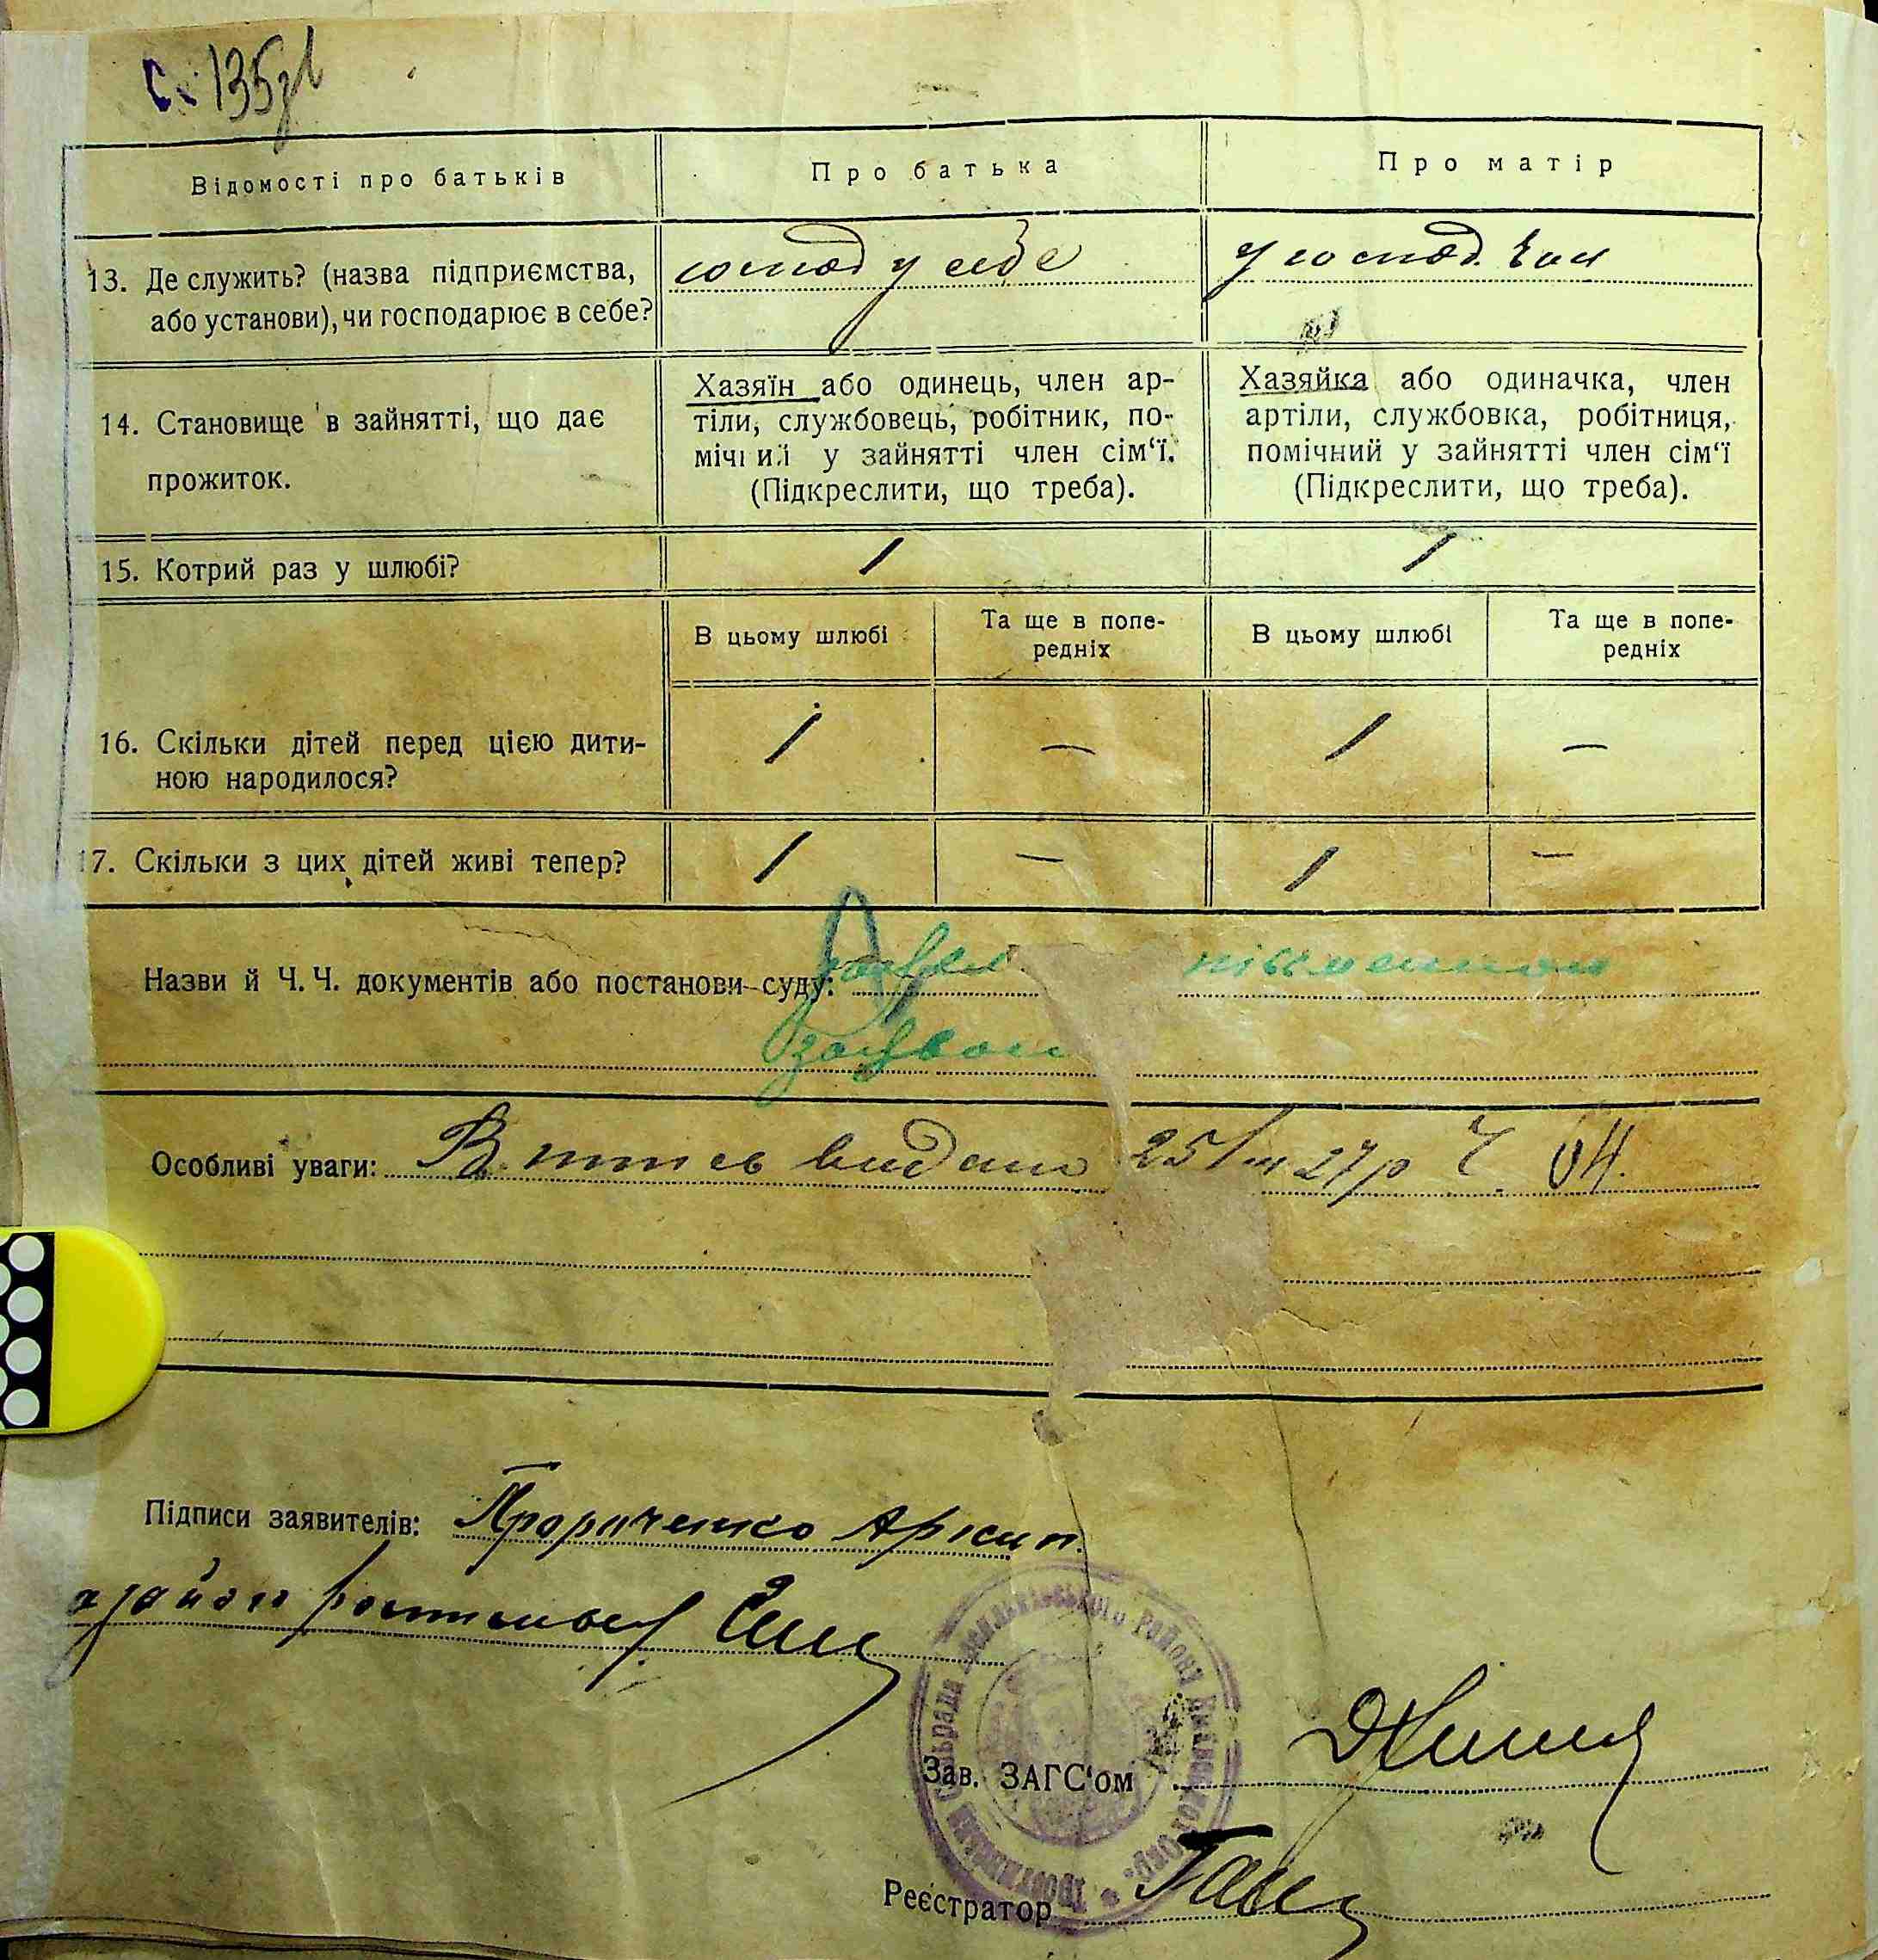 135
Відомості про батьків
Про батька
Про матір
13. Де служить? (назва підприємства,
або установи), чи господарює в себе?
господ у себе
у господ.
14. Становище в зайнятті, що дає
прожиток.
Хазяїн або одинець, член ар-
тіли, службовець, робітник, по-
мічний у зайнятті член сім'ї.
(Підкреслити, що треба).
Хазяйка або одиначка, член
артіли, службовка, робітниця,
помічний у зайнятті член сім'ї
(Підкреслити, що треба).
15. Котрий раз у шлюбі?
1
1
В цьому шлюбі
Та ще в попе-
редніх
В цьому шлюбі
Та ще в попе-
редніх
16. Скільки дітей перед цією дити-
ною народилося?
1
—
1
—
17. Скільки з цих дітей живі тепер?
1
—
1
—
Назви й Ч. Ч. документів або постанови суду:
Особливі уваги: Витпись видана 25/III 27р Ч.
Підписи заявителів: Архип
Сільрада району
Зав. ЗАГС'ом
Реєстратор